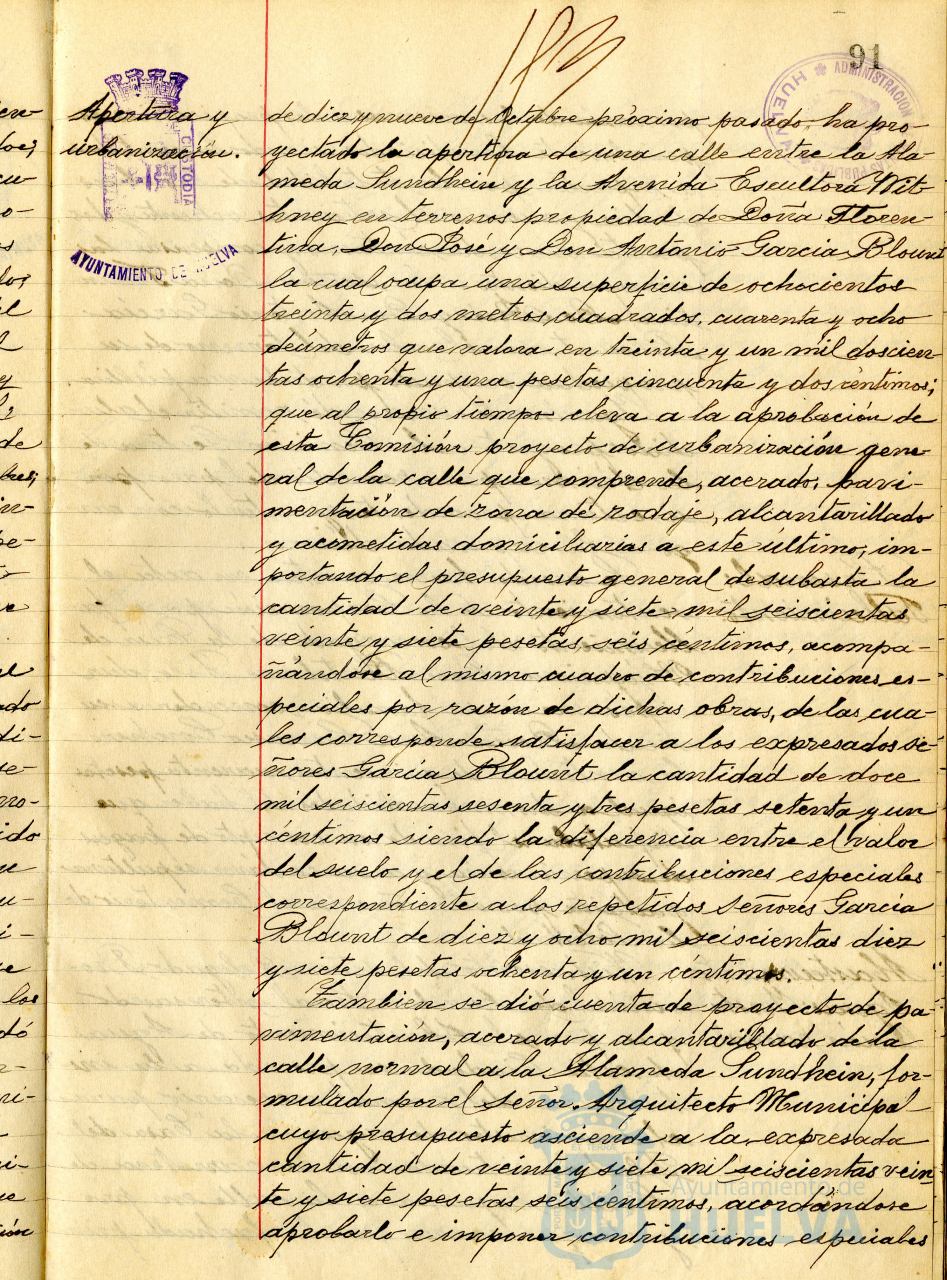 91
ADMINISTRACION
HUELVA
Apertura y
urbanización.
CUSTODIA
AYUNTAMIENTO DE HUELVA
de diez y nueve de Octubre próximo pasado, ha pro-
yectado la apertura de una calle entre la Ala-
meda Sundhein y la Avenida Escultora Wit-
hney en terrenos propiedad de Doña Floren-
tina, Don José y Don Antonio Garcia Blount
la cual ocupa una superficie de ochocientos
treinta y dos metros cuadrados, cuarenta y ocho
decímetros que valora en treinta y un mil doscien-
tas ochenta y una pesetas cincuenta y dos céntimos;
que al propio tiempo eleva a la aprobación de
esta Comisión proyecto de urbanización gene-
ral de la calle que comprende, acerado, pavi-
mentación de zona de rodaje, alcantarillado
y acometidas domiciliarias a este ultimo, im-
portando el presupuesto general de subasta la
cantidad de veinte y siete mil seiscientas
veinte y siete pesetas seis céntimos, acompa-
ñándose al mismo cuadro de contribuciones es-
peciales por razón de dichas obras, de las cua-
les corresponde satisfacer a los expresados se-
ñores Garcia Blount la cantidad de doce
mil seiscientas sesenta y tres pesetas setenta y un
céntimos siendo la diferencia entre el valor
del suelo y el de las contribuciones especiales
correspondiente a los repetidos Señores Garcia
Blount de diez y ocho mil seiscientas diez
y siete pesetas ochenta y un céntimos.
Tambien se dió cuenta de proyecto de pa
vimentación, acerado y alcantarillado de la
calle normal a la Alameda Sundhein, for-
mulado por el Señor Arquitecto Municipal
cuyo presupuesto asciende a la expresada
cantidad de veinte y siete mil seiscientas vein
te y siete pesetas seis céntimos, acordándose
aprobarlo e imponer contribuciones especiales
Ayuntamiento de
HUELVA